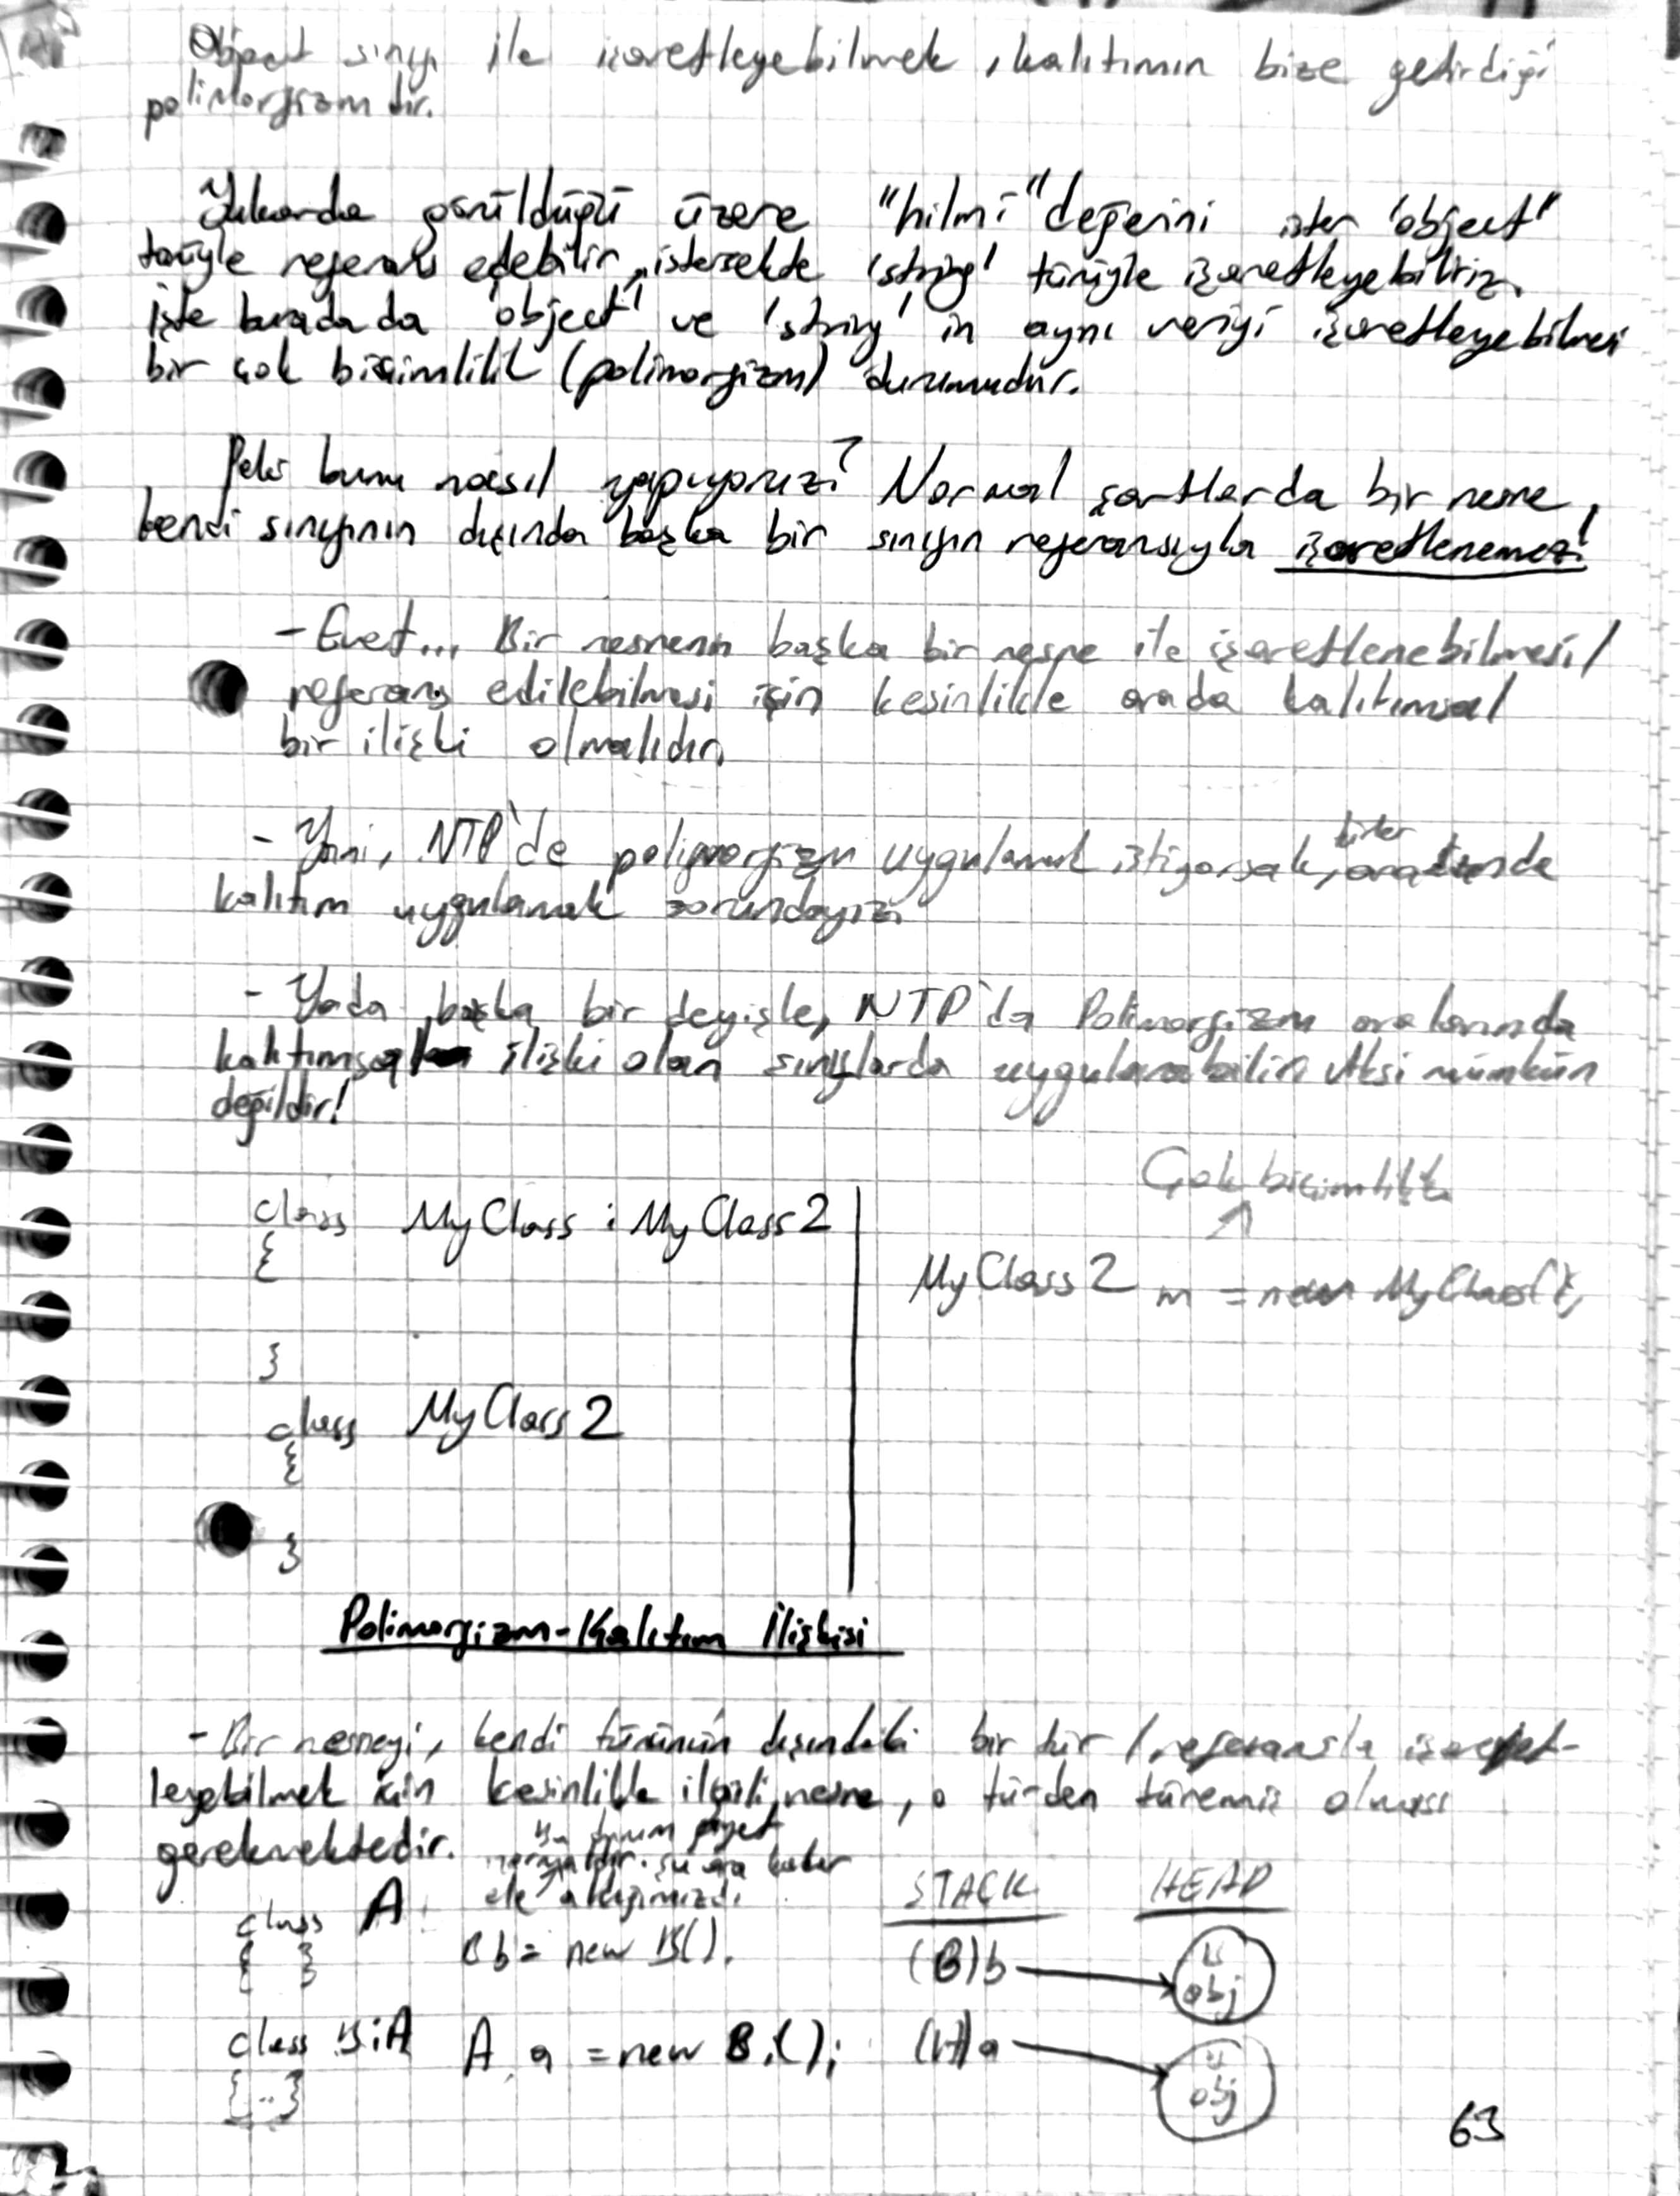 Object sınıfı ile işaretleyebilmek, kalıtımın bize getirdiği
polimorfizmdir.
Yukarda görüldüğü üzere "hilmi" değerini ister 'object'
türüyle referans edebilir, istersekte 'string' türüyle işaretleyebiliriz.
İşte burada da 'object' ve 'string' in aynı veriyi işaretleyebilmesi
bir çok biçimlilik (polimorfizm) durumudur.
Peki bunu nasıl yapıyoruz? Normal şartlarda bir nesne,
kendi sınıfının dışında başka bir sınıfın referansıyla işaretlenemez!
- Evet... Bir nesnenin başka bir nesne ile işaretlenebilmesi/
referans edilebilmesi için kesinlikle arada kalıtımsal
bir ilişki olmalıdır.
- Yani, NTP'de polimorfizm uygulamak istiyorsak, türler arasında
kalıtım uygulamak zorundayız.
- Yada başka bir deyişle, NTP'da Polimorfizm aralarında
kalıtımsal ilişki olan sınıflarda uygulanabilir. Aksi mümkün
değildir!
Çok biçimlilik
class MyClass : MyClass2
{
MyClass2 m = new MyClass();
}
class MyClass2
{
}
Polimorfizm-Kalıtım İlişkisi
- Bir nesneyi, kendi türünün dışındaki bir tür / referansla işaret-
leyebilmek için kesinlikle ilgili nesne, o türden türemiş olması
gerekmektedir.
Bu durum gayet
normaldir. Şu ana kadar
ele aldığımızdı.
STACK HEAP
class A
{ }
B b = new B().
(B)b
B
obj
class B:A
{..}
A a = new B();
(A)a
B
obj
63